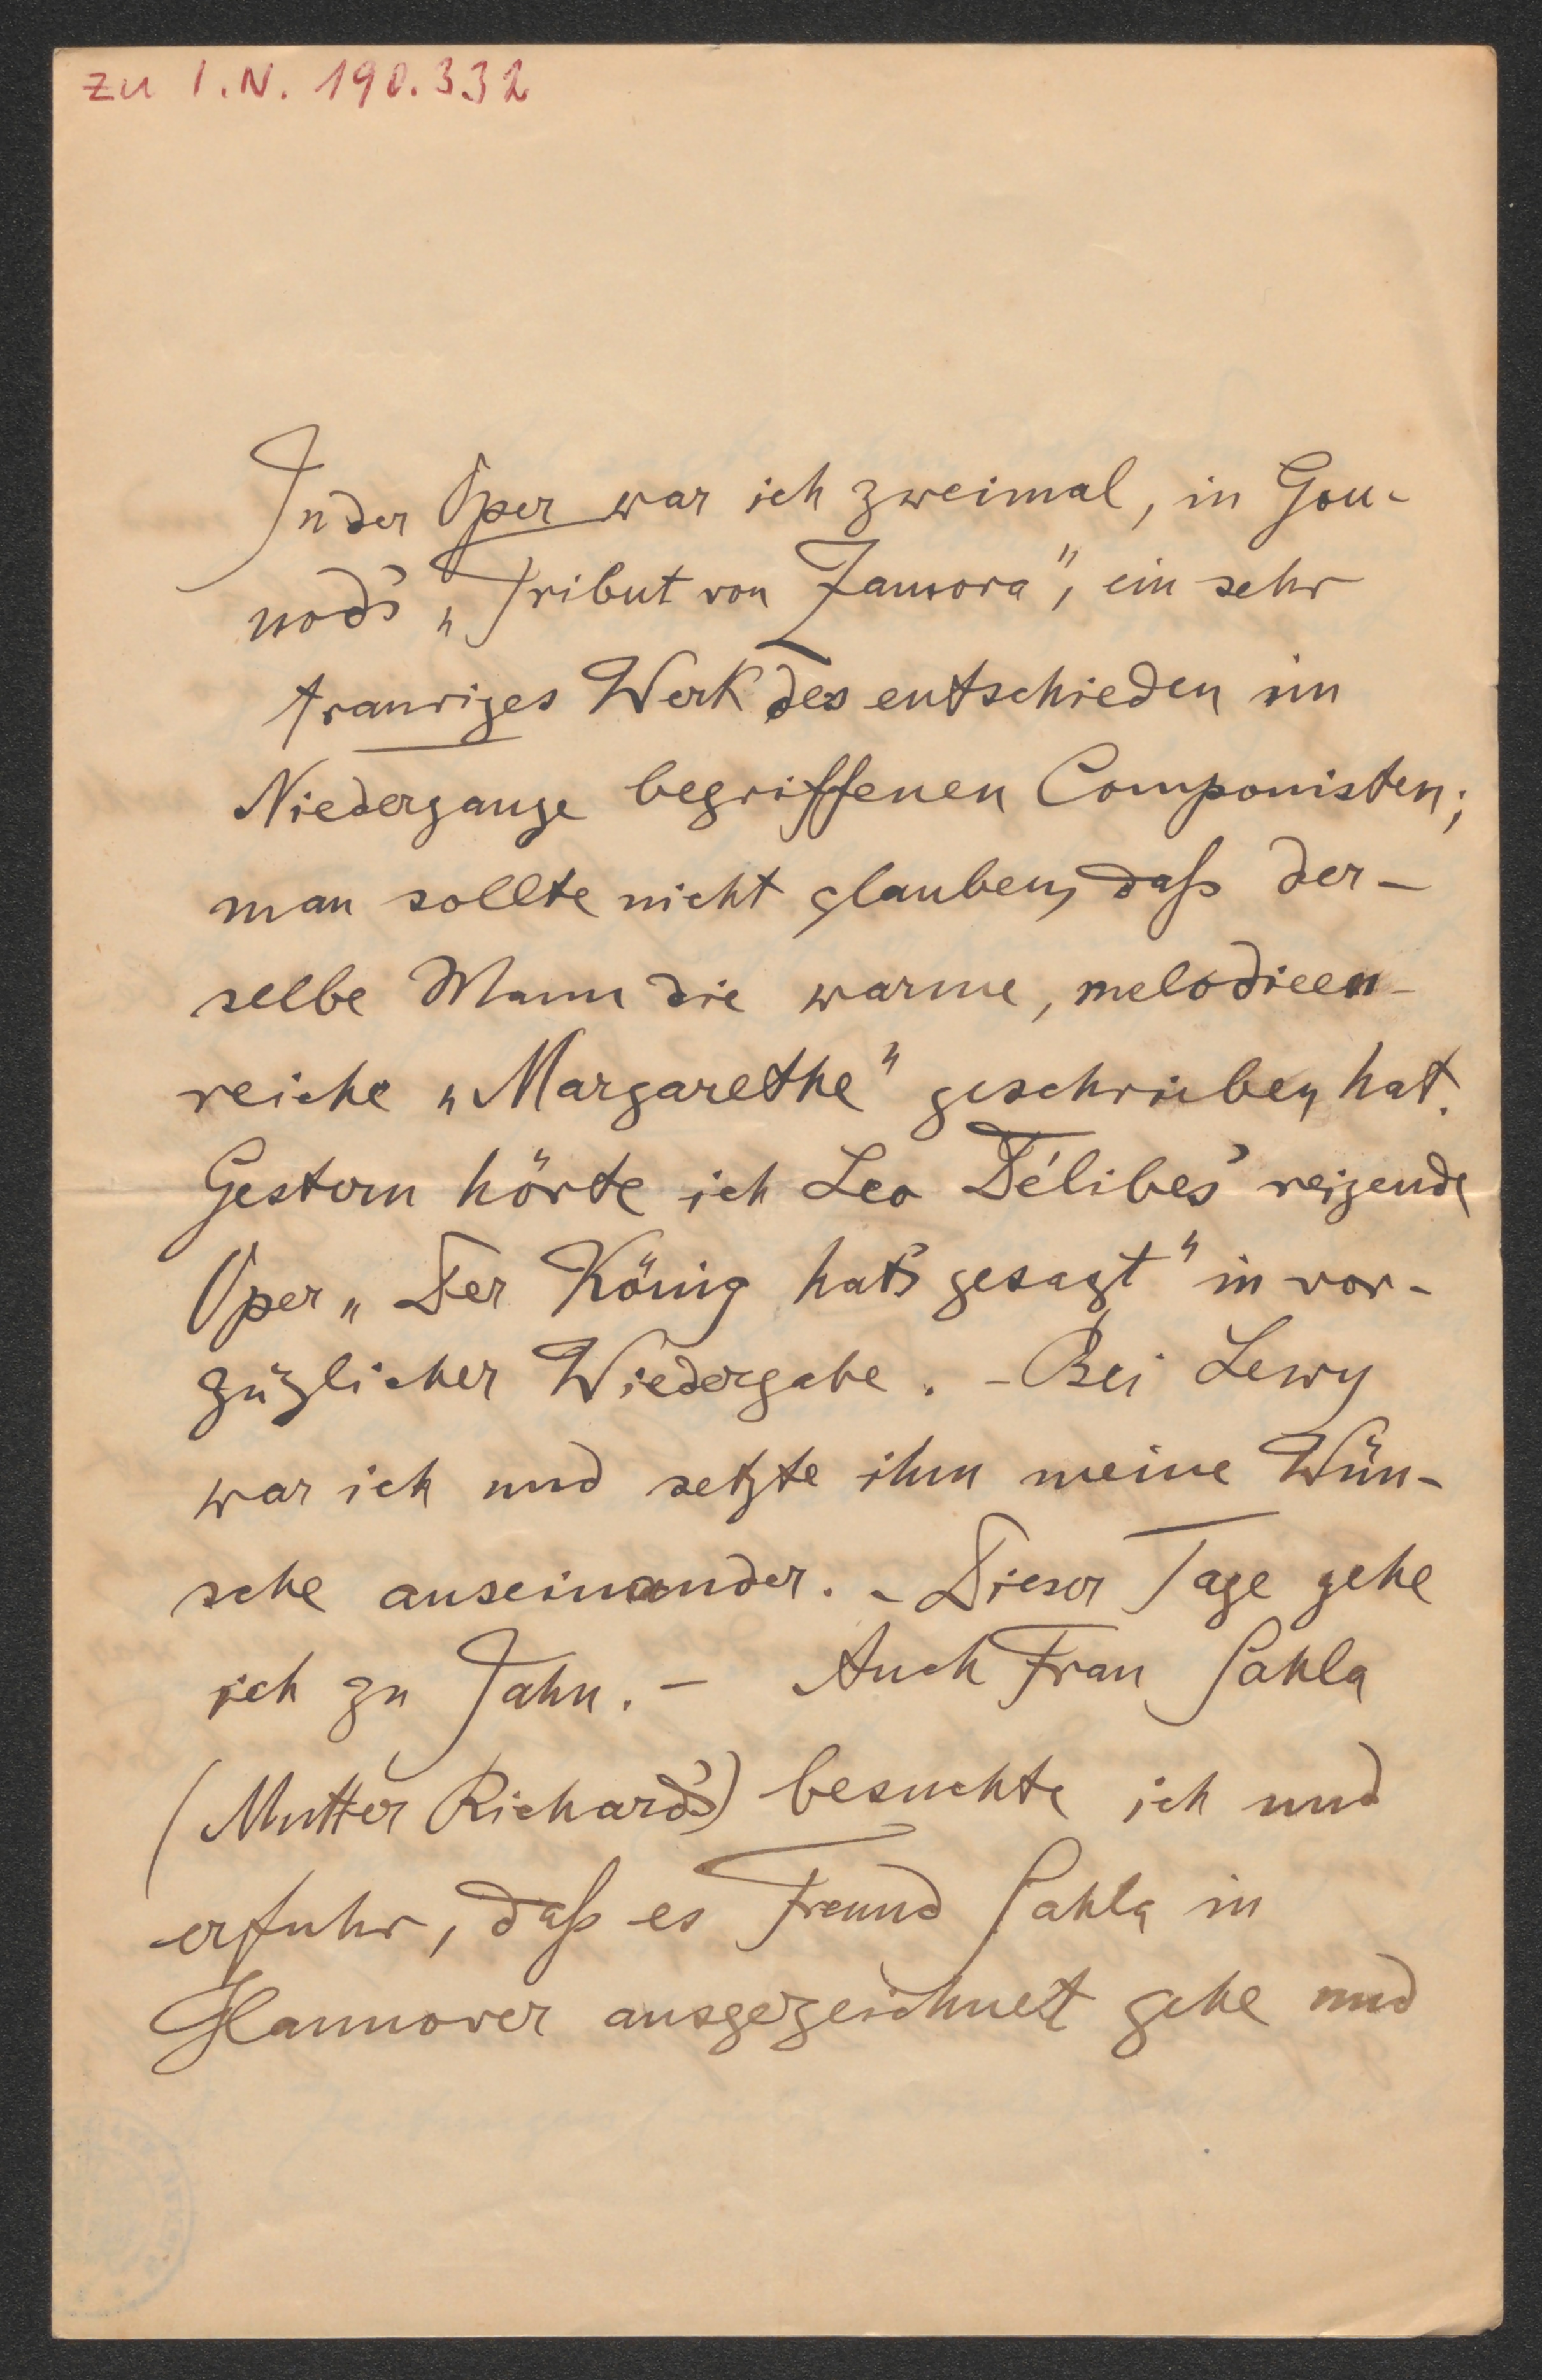 zu I.N. 190.332
In der Oper war ich zweimal, in Gou-
nod's „Tribut von Zamora“, ein sehr
trauriges Werk des entschieden im
Niedergange begriffenen Componisten;
man sollte nicht glauben, daß der-
selbe Mann die warme, melodieen-
reiche „Margarethe“ geschrieben hat.
Gestern hörte ich Leo Délibes' reizende
Oper „Der König hat's gesagt“ in vor-
züglicher Wiedergabe. - Bei Lewy
war ich und setzte ihm meine Wün-
sche auseinander. - Dieser Tage gehe
ich zu Jahn. - Auch Frau Sahla
(Mutter Richard's) besuchte ich und
erfuhr, daß es Freund Sahla in
Hannover ausgezeichnet gehe und